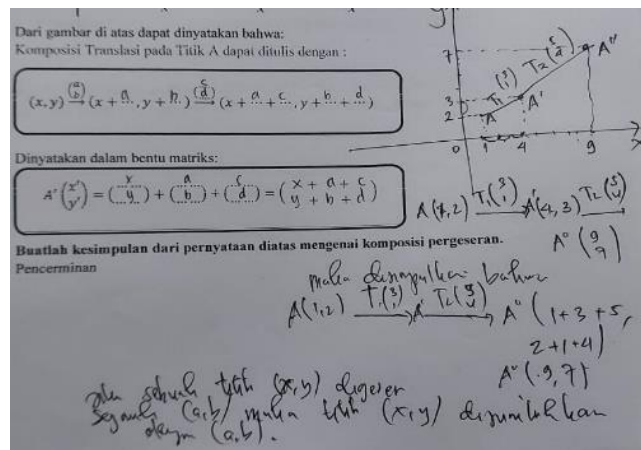 Dari gambar di atas dapat dinyatakan bahwa:
Komposisi Translasi pada Titik A dapat ditulis dengan :
(x, y) →(a b) (x + a, y + b) →(c d) (x + a + c, y + b + d)
Dinyatakan dalam bentu matriks:
A'(x' y') = (x y) + (a b) + (c d) = (x + a + c y + b + d)
Buatlah kesimpulan dari pernyataan diatas mengenai komposisi pergeseran.
Pencerminan
y
7
3
2
0 1 4 9
A
A'
A''
T₁ (3 1)
T₂ (5 4)
A(1,2) T₁(3 1) A'(4,3) T₂(5 4)
A''(9
maka disimpulkan bahwa
A(1,2) T₁(3 1) A' T₂(5 4) A'' (1+3+5,
2+1+4)
A''(9,7)
sebuah titik (x,y) digeser
sejauh (a,b) maka titik (x,y) dijumlahkan
dengan (a,b).